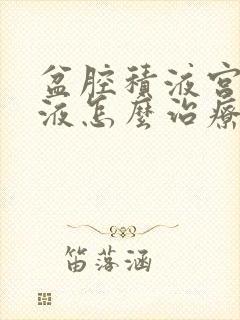 盆腔積液宮
液怎麽治療
笛落涵